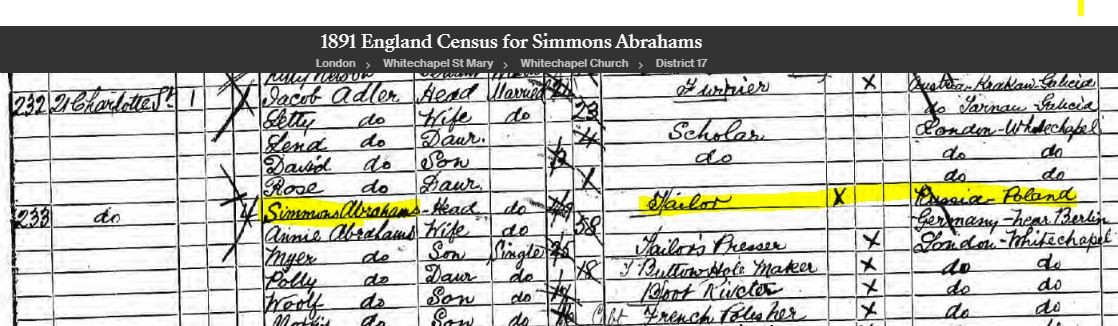 1891 England Census for Simmons Abrahams
London > Whitechapel St Mary > Whitechapel Church > District 17
232 21 Charlotte St 1 Jacob Adler Head Married Furrier X Austrian Krakaw Galicia
Letty do Wife do 23 do Tarnau Galicia
Lena do Daur. 4 Scholar London-Whitechapel
David do Son do do do
Rose do Daur. do do
233 do 4 Simmons Abrahams Head do Tailor X Russia-Poland
Annie Abrahams Wife do 58 Germany-near Berlin
Myer do Son Single Tailor's Presser X London-Whitechapel
Polly do Daur do 18 Button Hole Maker X do do
Woolf do Son do Boot Riveter X do do
Morris do Son do French Polisher X do do